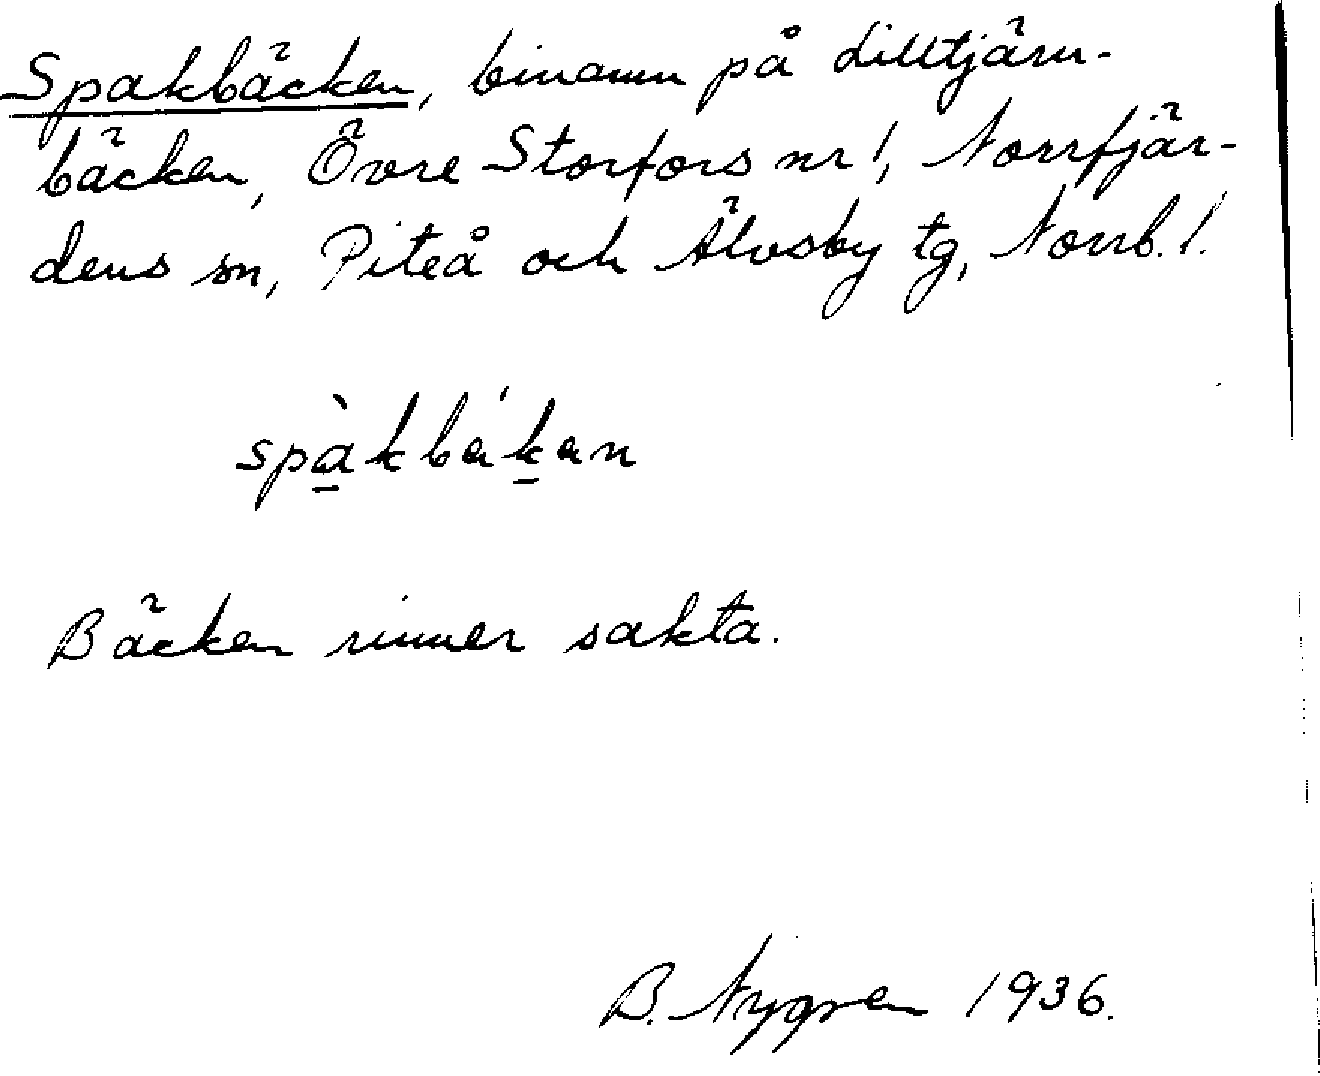 Spakbäcken, binamn på Lilltjärn-
bäcken, Övre Storfors nr 1, Norrfjär-
dens sn, Piteå och Älvsby tg, Norrb. l.
spà̱kbáḵan
Bäcken rinner sakta.
B. Nygren 1936.